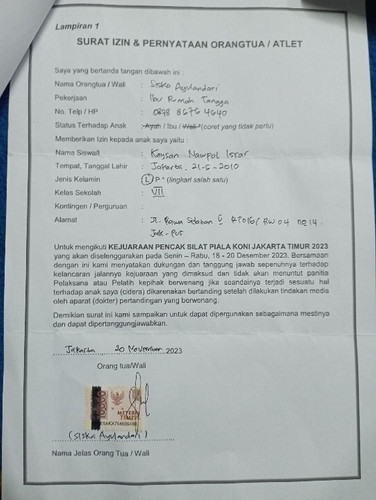 Lampiran 1
SURAT IZIN & PERNYATAAN ORANGTUA / ATLET
Saya yang bertanda tangan dibawah ini :
Nama Orangtua / Wali : Siska Ayulandari
Pekerjaan : Ibu Rumah Tangga
No. Telp / HP : 0878 8675 4640
Status Terhadap Anak : Ayah / Ibu / Wali* (coret yang tidak perlu)
Memberikan Izin kepada anak saya yaitu :
Nama Siswa/i : Kaysan Naufal Israr
Tempat, Tanggal Lahir : Jakarta, 21-5-2010
Jenis Kelamin : L/P* (lingkari salah satu)
Kelas Sekolah : VII
Kontingen / Perguruan :
Alamat : Jl. Rawa Selatan V RT 016/RW 04 no 14
Jak-Pus
Untuk mengikuti KEJUARAAN PENCAK SILAT PIALA KONI JAKARTA TIMUR 2023
yang akan diselenggarakan pada Senin – Rabu, 18 - 20 Desember 2023. Bersamaan
dengan ini kami menyatakan dukungan dan tanggung jawab sepenuhnya terhadap
kelancaran jalannya kejuaraan yang dimaksud dan tidak akan menuntut panitia
Pelaksana atau Pelatih kepihak berwenang jika seandainya terjadi sesuatu hal
terhadap anak saya (cidera) dikarenakan bertanding setelah dilakukan tindakan medis
oleh aparat (dokter) pertandingan yang berwenang.
Demikian surat ini kami sampaikan untuk dapat dipergunakan sebagaimana mestinya
dan dapat dipertanggungjawabkan.
Jakarta 20 November 2023
Orang tua/Wali
10000
METERAI
TEMPEL
(Siska Ayulandari)
Nama Jelas Orang Tua / Wali